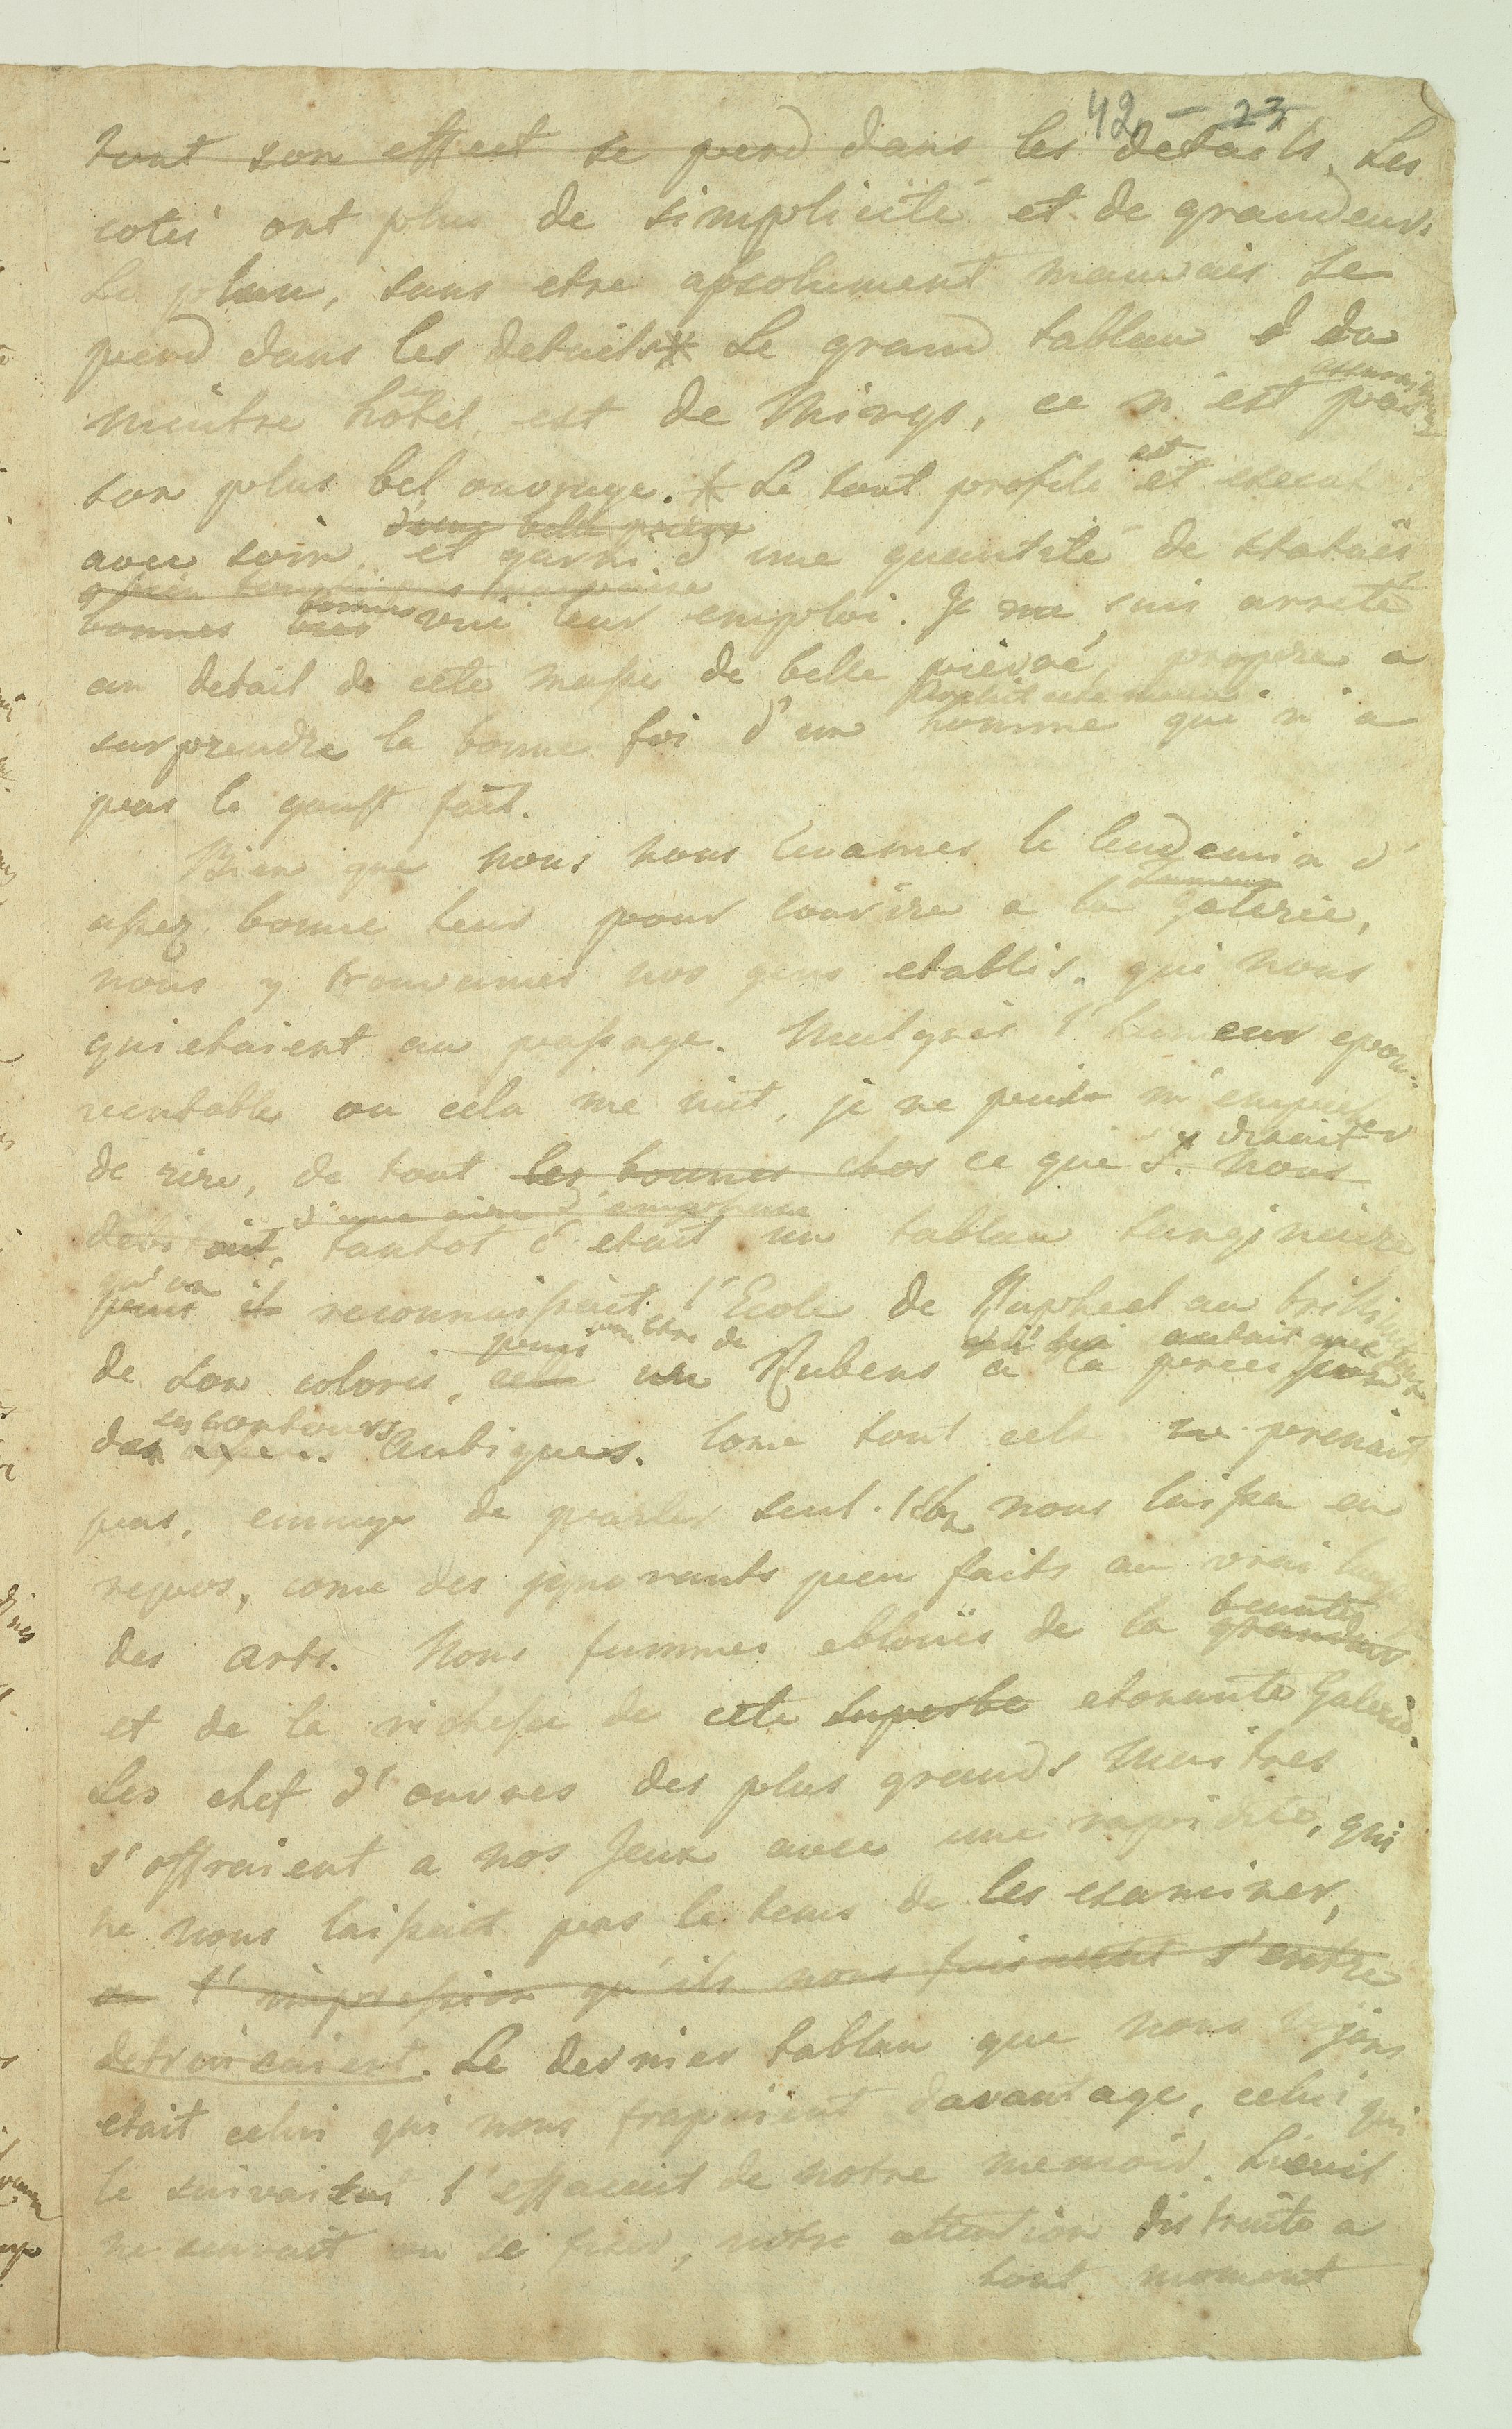 42 - 23
tout son effect se perd dans les details. Les
cotés ont plus de simplicité et de grandeur.
Le plan, sans etre absolument mauvais se
perd dans les details* Le grand tablau d du
maitre hôtel, est de Mings, ce n'est pas
son plus bel ouvrage. * Le tout profile est et execut
d'une belle pierre
avec soin, et garni d'une quantité de statuës,
bonnes vui leur emploi. Je me suis arreté
au detail de cete masse de belle pierre, propre a
surprendre la bonne foi d'un homme que n'a
pas le goust fait.
Bien que nous nous levames le lendemin d'
assez bonne heur pour courire a la Galerie,
nous y trouvames nos gens etablis, qui nous
quietaient au passage. Malgrés l'humeur epou-
ventable ou cela me mit, je ne puis m'empecher
y disait
de rire, de tout les bonnes chos ce que S. nous
d'une aire d'emphase
debitait, tantot c'etait un tablau
qu'on
puis il reconnaissait l'Ecole de Raphael au
de son coloris, cela un Rubens a la
ses contours
des Antiques. Come tout cela ne prenait
pas, ennuye de parler seul. nous laissa en
repos, come des jgnorants peu faits au vrai
beauté
des arts. Nous fummes eblouïs de la grandeur
et de la richesse de cete superbe etonante Galerie.
Les chef d'ouvres des plus grands Maitres
s'offraient a nos Jeux avec une rapidité, qui
ne nous laissait pas le tems de les examiner,
ou l'impression qu'ils nous faisaient s'entre
detruisaient. Le dernier tablau que nous vojons
etait celui qui nous frapaient davantage, celui qui
le suivait l'effacait de notre memoir. L'oeuil
ne scavait ou se fixer, notre attention distraite a
tout moment